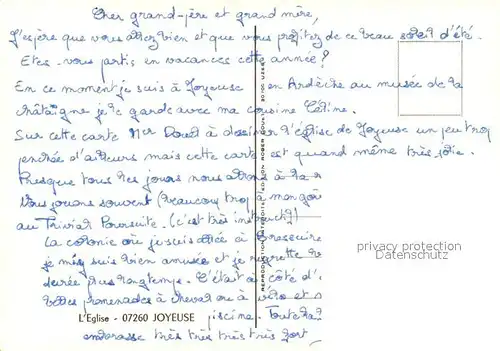 Cher grand-père et grand mère,
J'espère que vous allez bien et que vous profitez de ce beau soleil d'été.
Etes-vous partis en vacances cette année?
En ce moment je suis à Joyeuse en Ardèche au musée de la
châtaigne je le garde avec ma cousine Céline.
Sur cette carte Mr Doust à dessiner l'église de Joyeuse un peu trop
penchée d'ailleurs mais cette carte est quand même très jolie.
Presque tous les jours nous allons à la
Nous jouons souvent (beaucoup trop à mon goût
au Trivial Poursuite. (c'est très instructif)
La colonie où je suis allée à
je m'y suis bien amusée et je regrette
durée plus longtemps. C'était à côté d'
belles promenades à cheval ou à vélo et
piscine. Toute la
embrasse très très très très fort
L'Eglise - 07260 JOYEUSE
REPRODUCTION INTERDITE EDITION ROGER DOUST 30700 UZES
privacy protection
Datenschutz